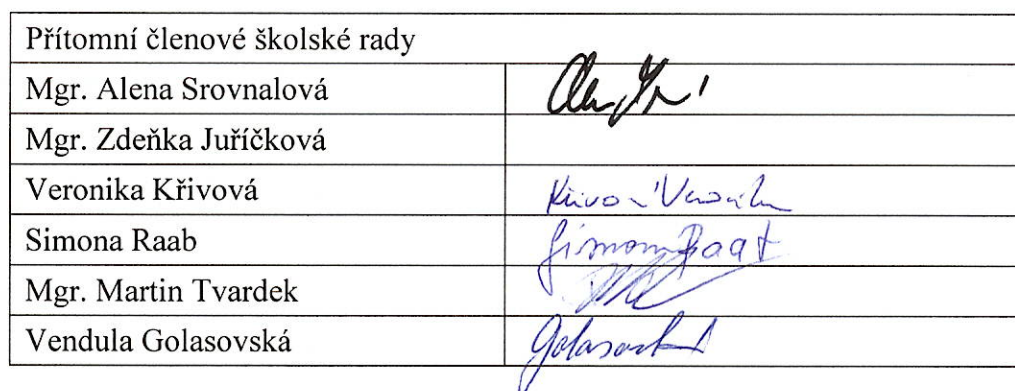 Přítomní členové školské rady
Mgr. Alena Srovnalová
Mgr. Zdeňka Juříčková
Veronika Křivová Křivová Veronika
Simona Raab Simona Raab
Mgr. Martin Tvardek
Vendula Golasovská Golasovská